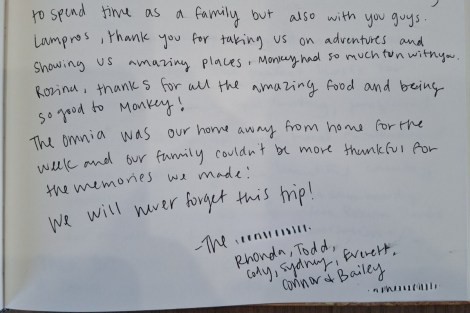 to spend time as a family but also with you guys.
Lampros, thank you for taking us on adventures and
showing us amazing places, Monkey had so much fun with you.
Rozina, thanks for all the amazing food and being
so good to Monkey!
The Omnia was our home away from home for the
week and our family couldn't be more thankful for
the memories we made!
We will never forget this trip!
-The
Rhonda, Todd,
Cody, Sydney, Everett,
Connor & Bailey